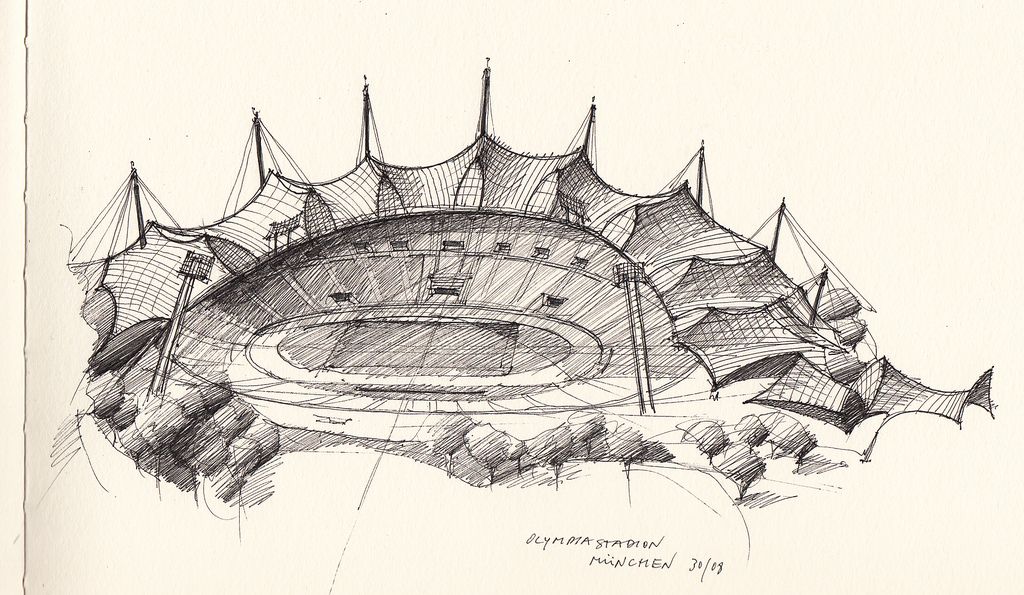 OLYMPIASTADION
MÜNCHEN 30/08